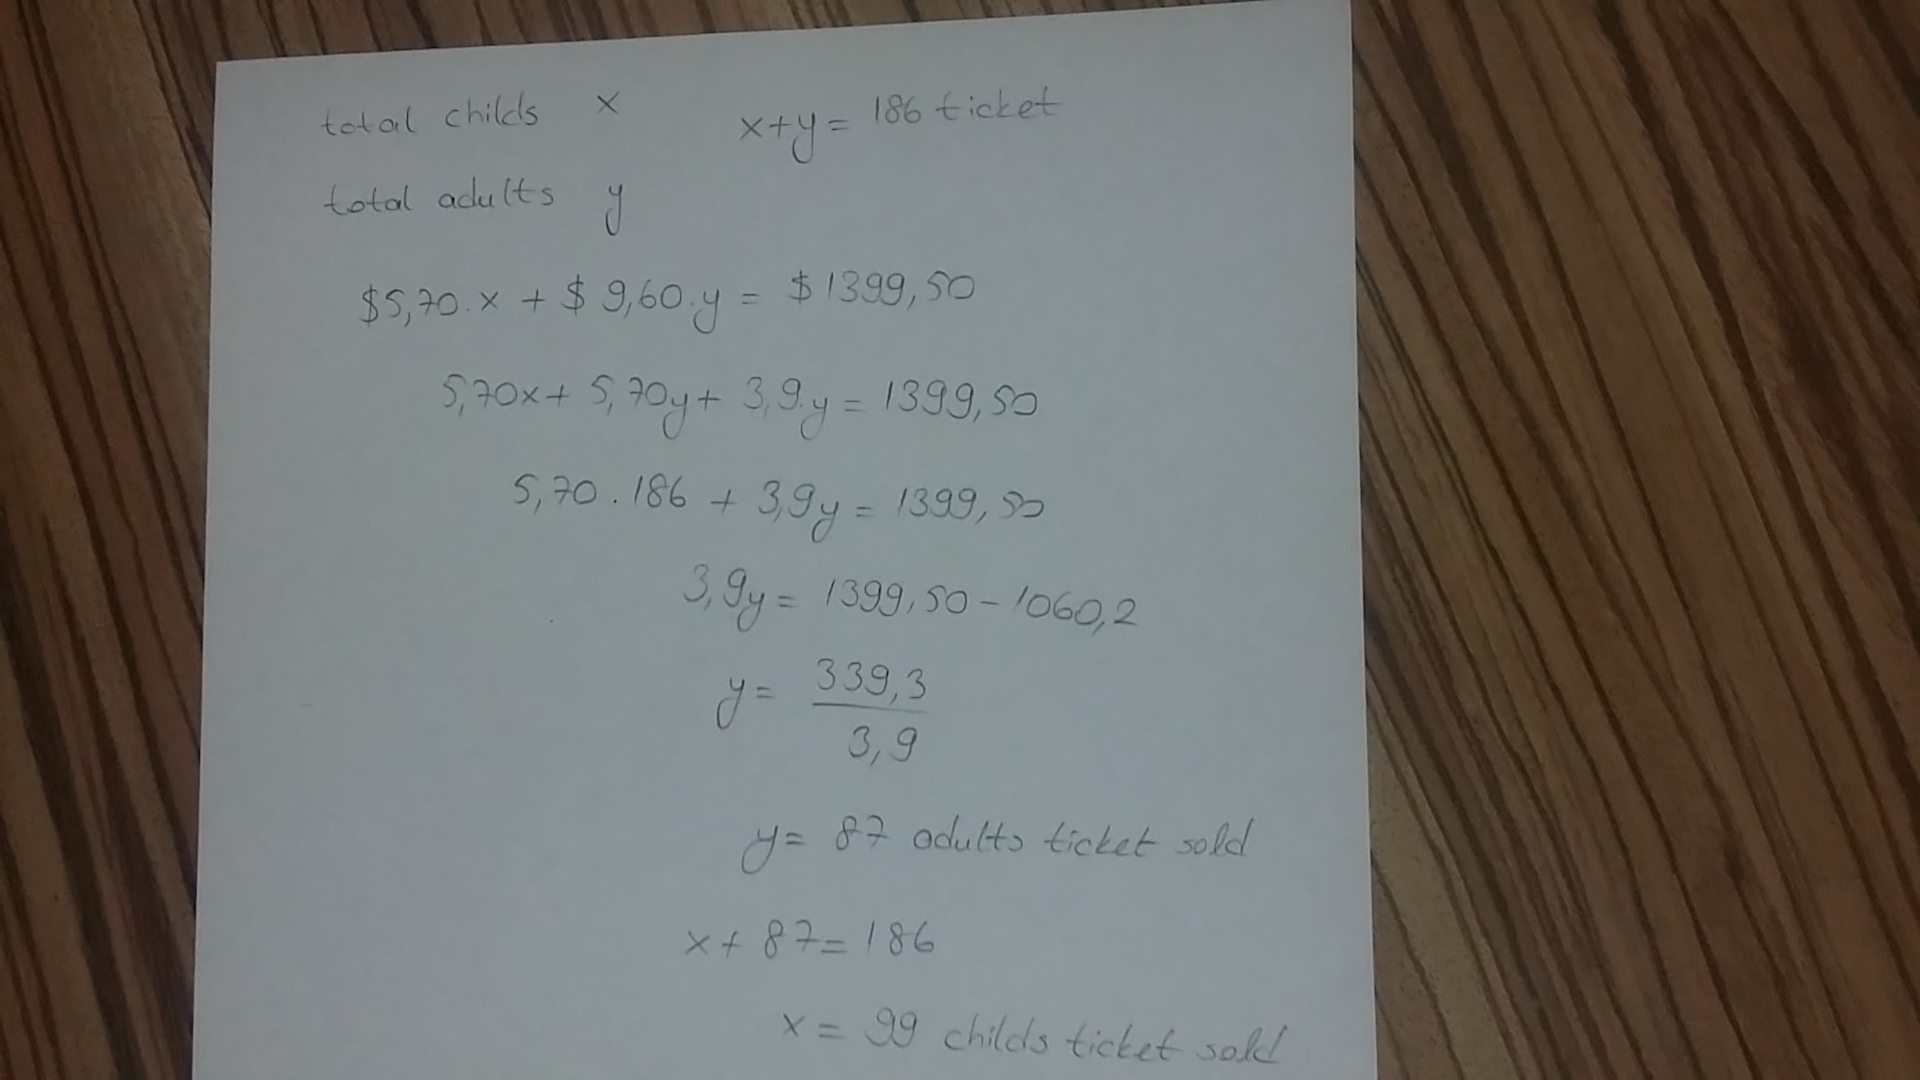 total childs x x+y= 186 ticket
total adults y
$5,70.x + $ 9,60.y = $1399,50
5,70x+ 5,70y+ 3,9.y = 1399,50
5,70.186 + 3,9y = 1399,50
3,9y = 1399,50-1060,2
y= 339,3
3,9
y= 87 adults ticket sold
x+ 87=186
x= 99 childs ticket sold